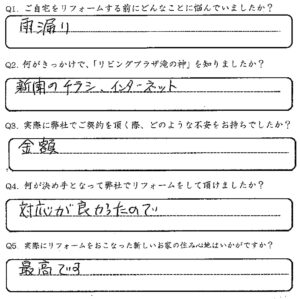 Q1. ご自宅をリフォームする前にどんなことに悩んでいましたか？
雨漏り
Q2. 何がきっかけで、「リビングプラザ滝の神」を知りましたか？
新聞のチラシ、インターネット
Q3. 実際に弊社でご契約を頂く際、どのような不安をお持ちでしたか？
金額
Q4. 何が決め手となって弊社でリフォームをして頂けましたか？
対応が良かったので
Q5. 実際にリフォームをおこなった新しいお家の住み心地はいかがですか？
最高です